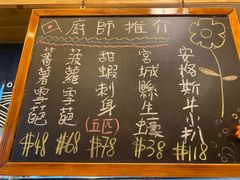 廚師推介
安格斯牛小扒
#118
宮城縣生蠔
#38
甜蝦刺身
(五匹)
#78
菠蘿雪葩
#68
蕃薯雪葩
#48